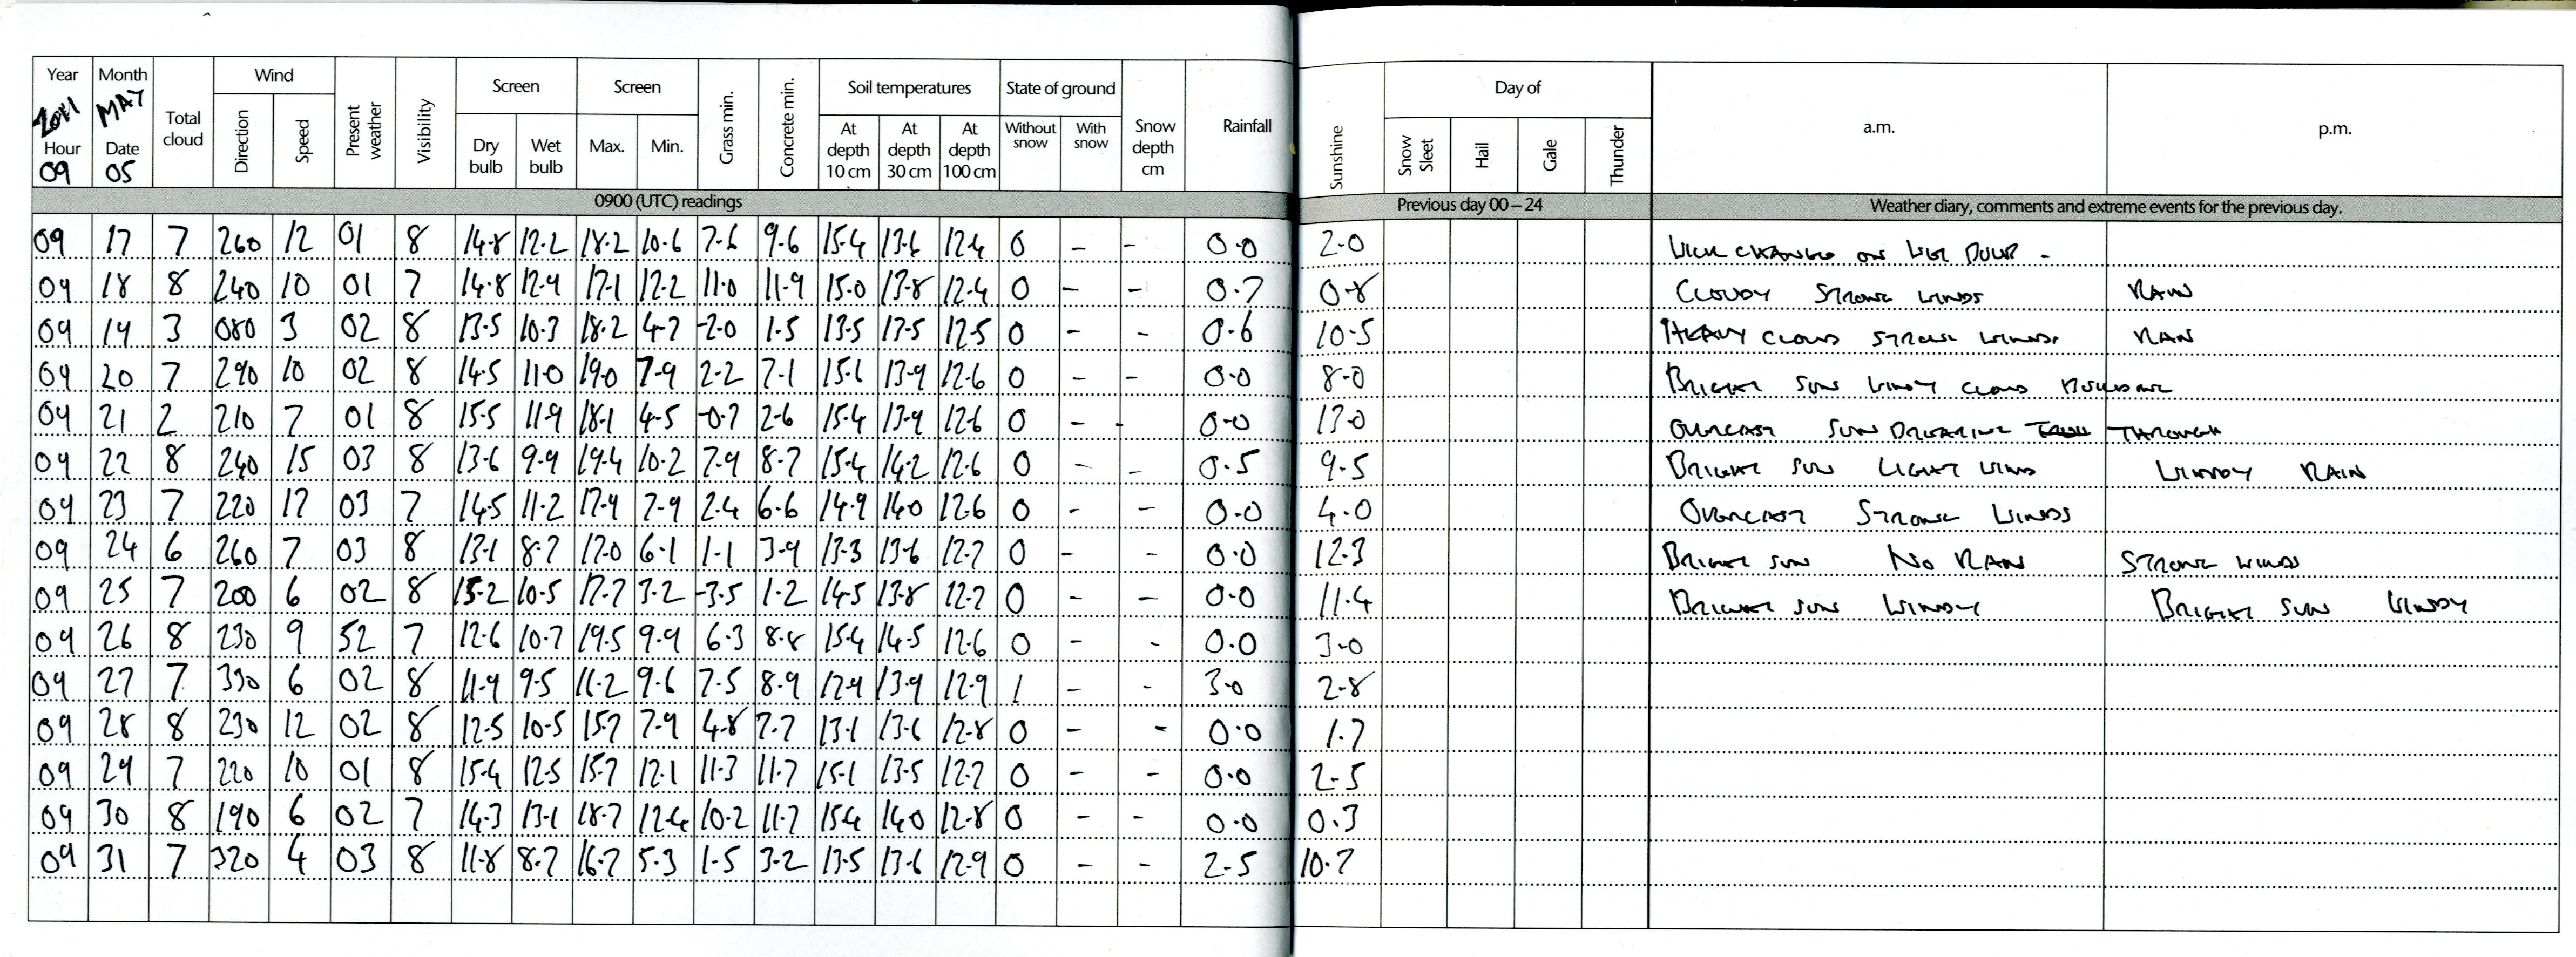 Year Month Total cloud Wind Present weather Visibility Screen Screen Grass min. Concrete min. Soil temperatures State of ground Snow depth cm Rainfall Sunshine Day of a.m. p.m.
2011 MAY Direction Speed Dry bulb Wet bulb Max. Min. At depth 10 cm At depth 30 cm At depth 100 cm Without snow With snow Snow Sleet Hail Gale Thunder
Hour Date
09 05
0900 (UTC) readings Previous day 00 – 24 Weather diary, comments and extreme events for the previous day.
09 17 7 260 12 01 8 14.8 12.2 18.2 10.6 7.6 9.6 15.4 13.6 12.4 0 - - 0.0 2.0 WICK CHANGED ON WET BULB -
09 18 8 240 10 01 7 14.8 12.9 17.1 12.2 11.0 11.9 15.0 13.8 12.4 0 - - 0.7 0.8 CLOUDY STRONG WINDS RAIN
09 19 3 080 3 02 8 13.5 10.3 18.2 4.7 -2.0 1.5 13.5 13.5 12.5 0 - - 0.6 10.5 HEAVY CLOUD STRONG WINDS RAIN
09 20 7 290 10 02 8 14.5 11.0 19.0 7.9 2.2 7.1 15.1 13.9 12.6 0 - - 0.0 8.0 BRIGHT SUN WINDY CLOUD BUILDING
09 21 2 210 7 01 8 15.5 11.9 18.1 4.5 -0.7 2.6 15.4 13.9 12.6 0 - - 0.0 13.0 OVERCAST SUN BREAKING THROUGH
09 22 8 240 15 03 8 13.6 9.9 19.4 10.2 7.9 8.7 15.4 14.2 12.6 0 - - 0.5 9.5 BRIGHT SUN LIGHT WIND WINDY RAIN
09 23 7 220 17 03 7 14.5 11.2 17.9 7.9 2.4 6.6 14.9 14.0 12.6 0 - - 0.0 4.0 OVERCAST STRONG WINDS
09 24 6 260 7 03 8 13.1 8.7 17.0 6.1 1.1 3.9 13.3 13.6 12.7 0 - - 0.0 12.3 BRIGHT SUN NO RAIN STRONG WINDS
09 25 7 200 6 02 8 15.2 10.5 17.7 3.2 -3.5 1.2 14.5 13.8 12.7 0 - - 0.0 11.4 BRIGHT SUN WINDY BRIGHT SUN WINDY
09 26 8 230 9 52 7 12.6 10.7 19.5 9.9 6.3 8.8 15.4 14.5 12.6 0 - - 0.0 3.0
09 27 7 330 6 02 8 11.9 9.5 16.2 9.6 7.5 8.9 12.9 13.9 12.9 1 - - 3.0 2.8
09 28 8 230 12 02 8 12.5 10.5 15.7 7.9 4.8 7.7 13.1 13.6 12.8 0 - - 0.0 1.7
09 29 7 220 10 01 8 15.4 12.5 15.7 12.1 11.3 11.7 15.1 13.5 12.7 0 - - 0.0 2.5
09 30 8 190 6 02 7 14.3 13.1 18.7 12.4 10.2 11.7 15.4 14.0 12.8 0 - - 0.0 0.3
09 31 7 320 4 03 8 11.8 8.7 16.7 5.3 1.5 3.2 13.5 13.6 12.9 0 - - 2.5 10.7